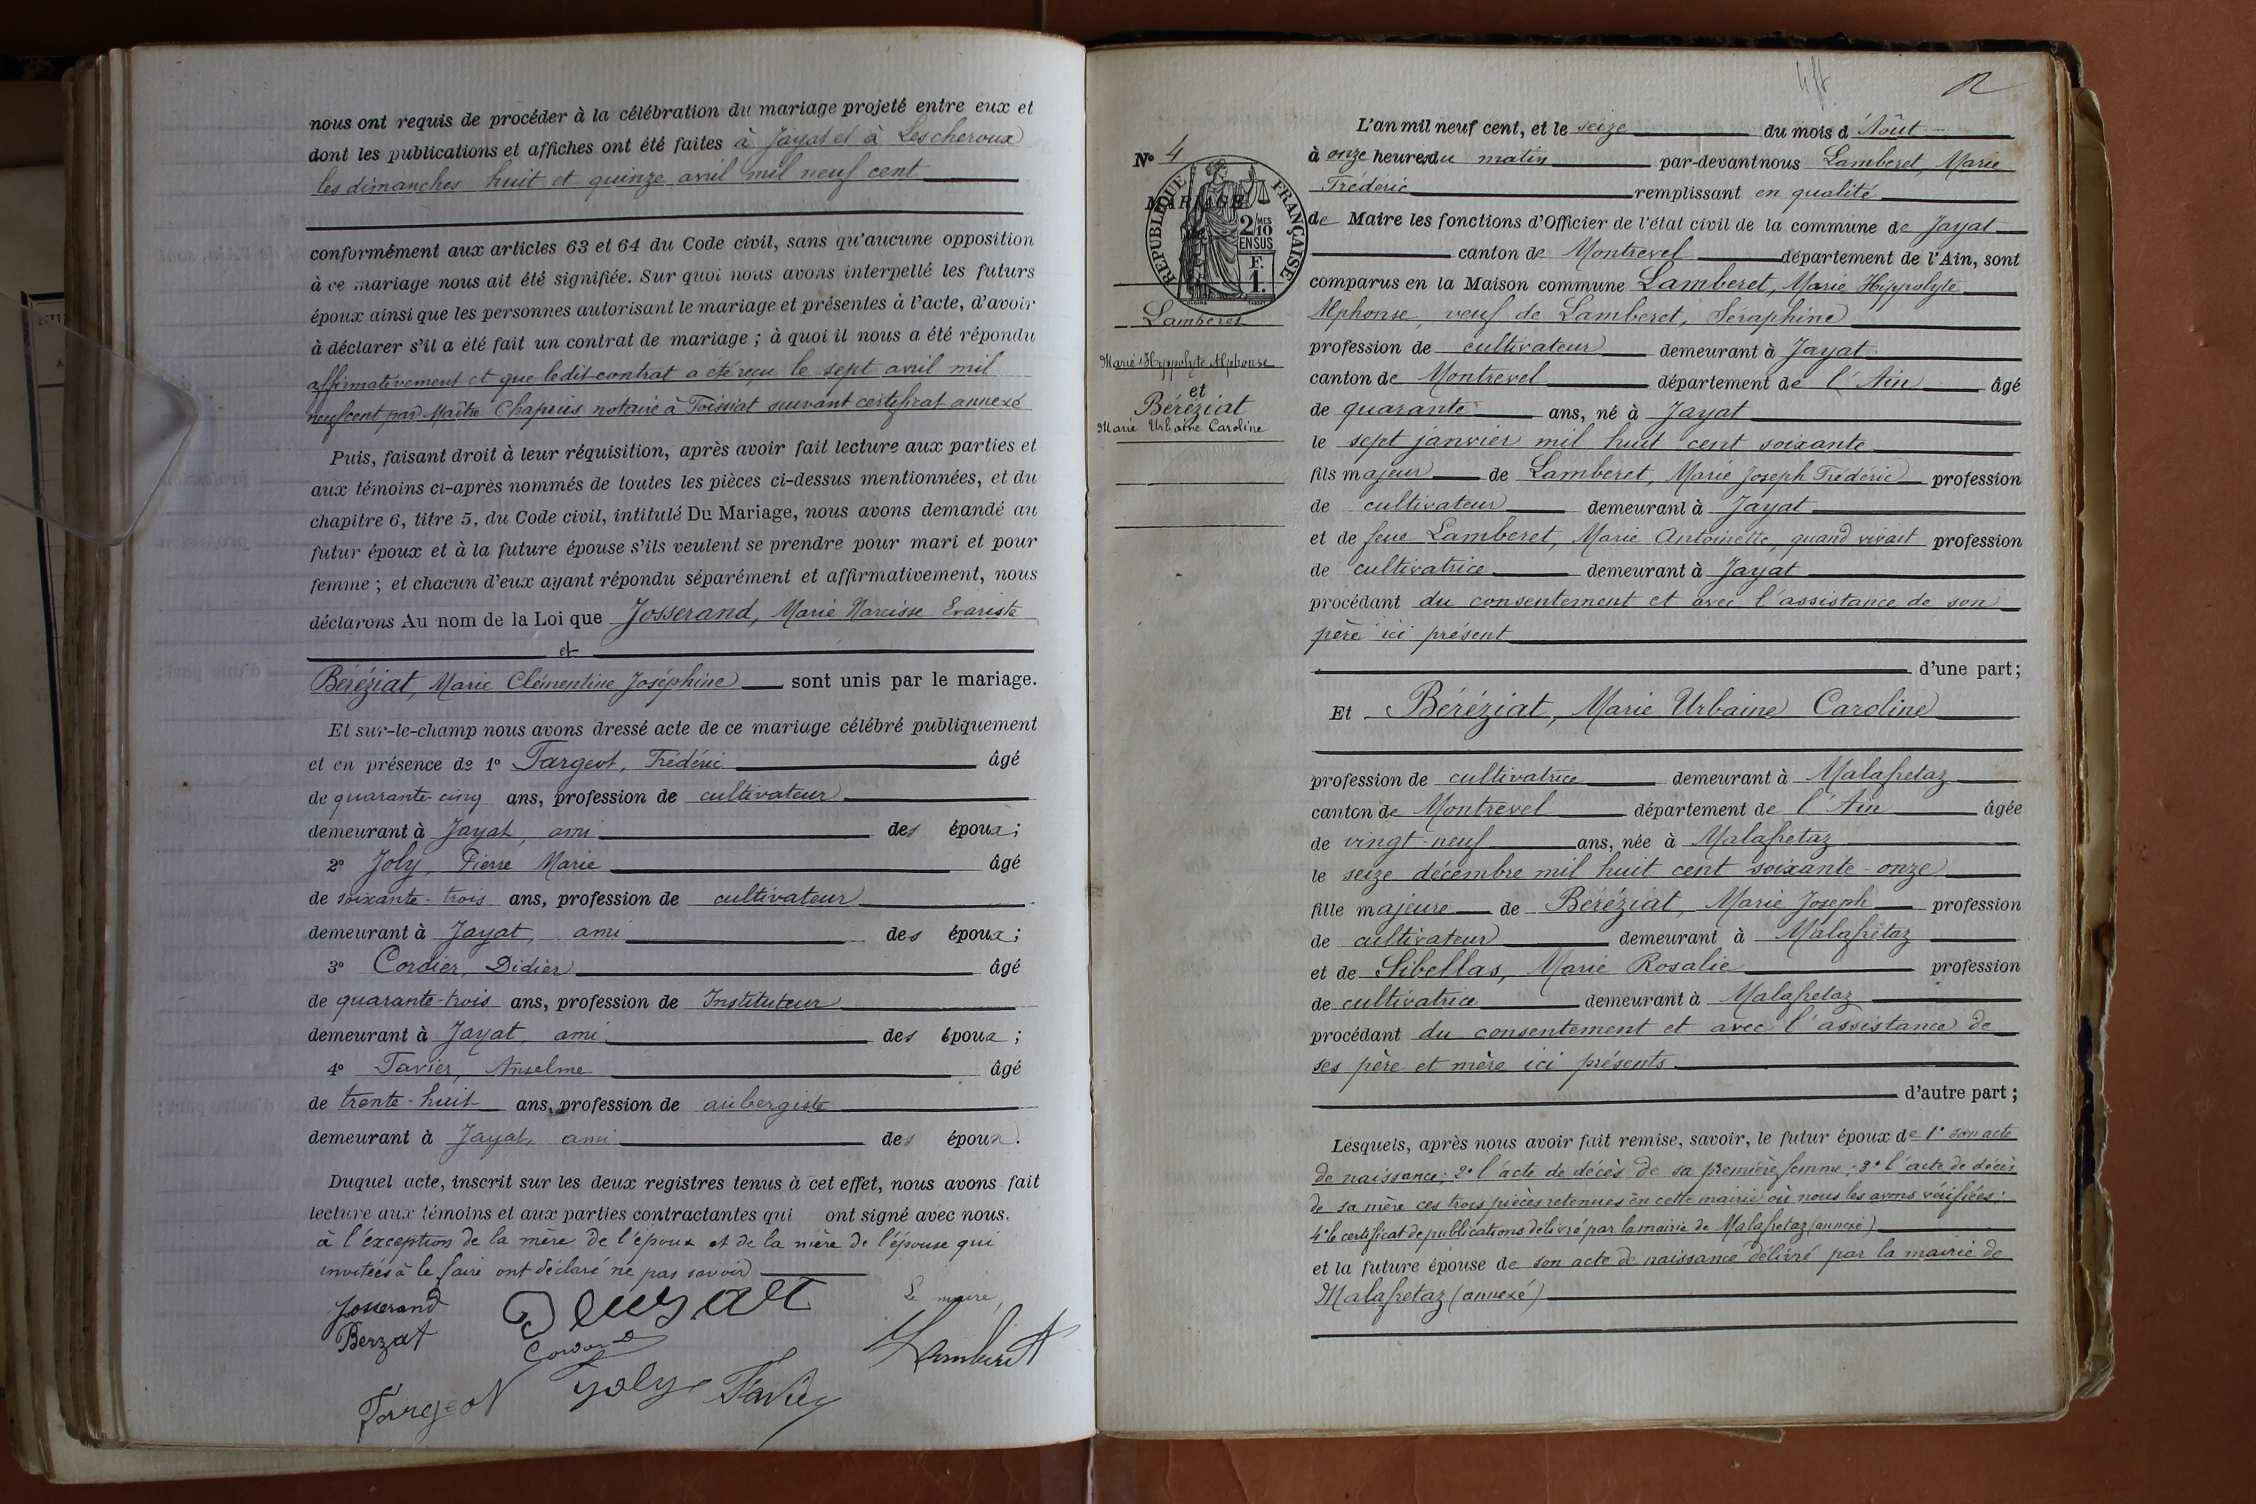 nous ont requis de procéder à la célébration du mariage projeté entre eux et
dont les publications et affiches ont été faites à Jayat et à Lescheroux
les dimanches huit et quinze avril mil neuf cent
conformément aux articles 63 et 64 du Code civil, sans qu'aucune opposition
à ce mariage nous ait été signifiée. Sur quoi nous avons interpellé les futurs
époux ainsi que les personnes autorisant le mariage et présentes à l'acte, d'avoir
à déclarer s'il a été fait un contrat de mariage ; à quoi il nous a été répondu
affirmativement et que ledit contrat a été reçu le sept avril mil
neuf cent par Maître Chapuis notaire à Foissiat suivant certificat annexé
Puis, faisant droit à leur réquisition, après avoir fait lecture aux parties et
aux témoins ci-après nommés de toutes les pièces ci-dessus mentionnées, et du
chapitre 6, titre 5, du Code civil, intitulé Du Mariage, nous avons demandé au
futur époux et à la future épouse s'ils veulent se prendre pour mari et pour
femme ; et chacun d'eux ayant répondu séparément et affirmativement, nous
déclarons Au nom de la Loi que Josserand, Marie Narcisse Evariste
et
Béréziat, Marie Clémentine Joséphine sont unis par le mariage.
Et sur-le-champ nous avons dressé acte de ce mariage célébré publiquement
et en présence de 1° Fargeot, Frédéric âgé
de quarante-cinq ans, profession de cultivateur
demeurant à Jayat, ami des époux ;
2° Joly, Pierre Marie âgé
de soixante-trois ans, profession de cultivateur
demeurant à Jayat, ami des époux ;
3° Cordier, Didier âgé
de quarante-trois ans, profession de Instituteur
demeurant à Jayat, ami des époux ;
4° Favier, Anselme âgé
de trente-huit ans, profession de aubergiste
demeurant à Jayat, ami des époux.
Duquel acte, inscrit sur les deux registres tenus à cet effet, nous avons fait
lecture aux témoins et aux parties contractantes qui ont signé avec nous.
à l'éxception de la mère de l'époux et de la mère de l'épouse qui
invitées à le faire ont déclaré ne pas savoir
Le maire,
Josserand
Berzat
Lamberet
Fargeot Joly Favier
N° 4
MARIAGE
RÉPUBLIQUE FRANÇAISE
2/10 EN SUS
F. 1.
Lamberet
Marie Hyppolyte Alphonse
et
Béréziat
Marie Urbaine Caroline
L'an mil neuf cent, et le seize du mois d'Août
à onze heures du matin par-devant nous Lamberet, Marie
Frédéric remplissant en qualité
de Maire les fonctions d'Officier de l'état civil de la commune de Jayat
canton de Montrevel département de l'Ain, sont
comparus en la Maison commune Lamberet, Marie Hippolyte
Alphonse, veuf de Lamberet, Séraphine
profession de cultivateur demeurant à Jayat
canton de Montrevel département de l'Ain âgé
de quarante ans, né à Jayat
le sept janvier mil huit cent soixante
fils majeur de Lamberet, Marie Joseph Frédéric profession
de cultivateur demeurant à Jayat
et de feue Lamberet, Marie Antoinette, quand vivait profession
de cultivatrice demeurant à Jayat
procédant du consentement et avec l'assistance de son
père ici présent
d'une part ;
Et Béréziat, Marie Urbaine Caroline
profession de cultivatrice demeurant à Malafretaz
canton de Montrevel département de l'Ain âgée
de vingt-neuf ans, née à Malafretaz
le seize décembre mil huit cent soixante-onze
fille majeure de Béréziat, Marie Joseph profession
de cultivateur demeurant à Malafretaz
et de Sibellas, Marie Rosalie profession
de cultivatrice demeurant à Malafretaz
procédant du consentement et avec l'assistance de
ses père et mère ici présents
d'autre part ;
Lesquels, après nous avoir fait remise, savoir, le futur époux de 1° son acte
de naissance ; 2° l'acte de décès de sa première femme ; 3° l'acte de décès
de sa mère ces trois pièces retenues en cette mairie où nous les avons vérifiées ;
4° le certificat de publications délivré par la mairie de Malafretaz (annexé)
et la future épouse de son acte de naissance délivré par la mairie de
Malafretaz (annexé)